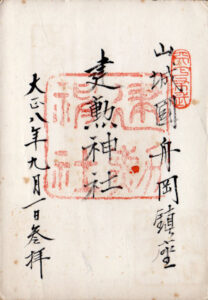 山城國舟岡鎮座
建勲神社
大正八年九月一日参拝
建勲
神社